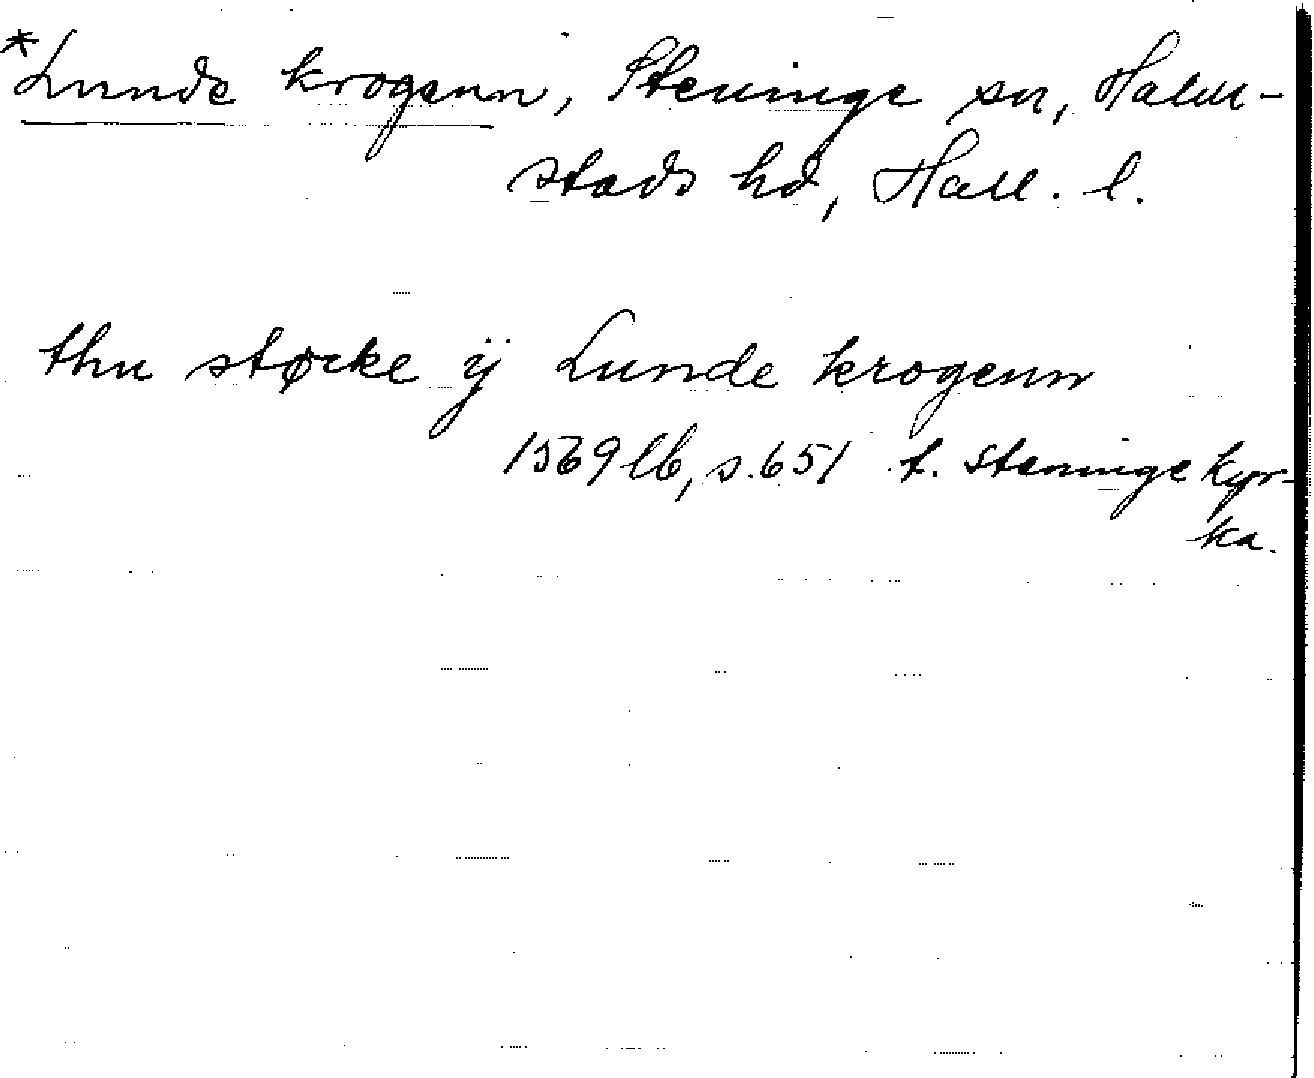 *Lunde krogenn, Steninge sn, Halm-
stads hd, Hall. l.
thu støcke ÿ Lunde krogenn
1569 lb, s. 651 t. Steninge kyr-
ka.